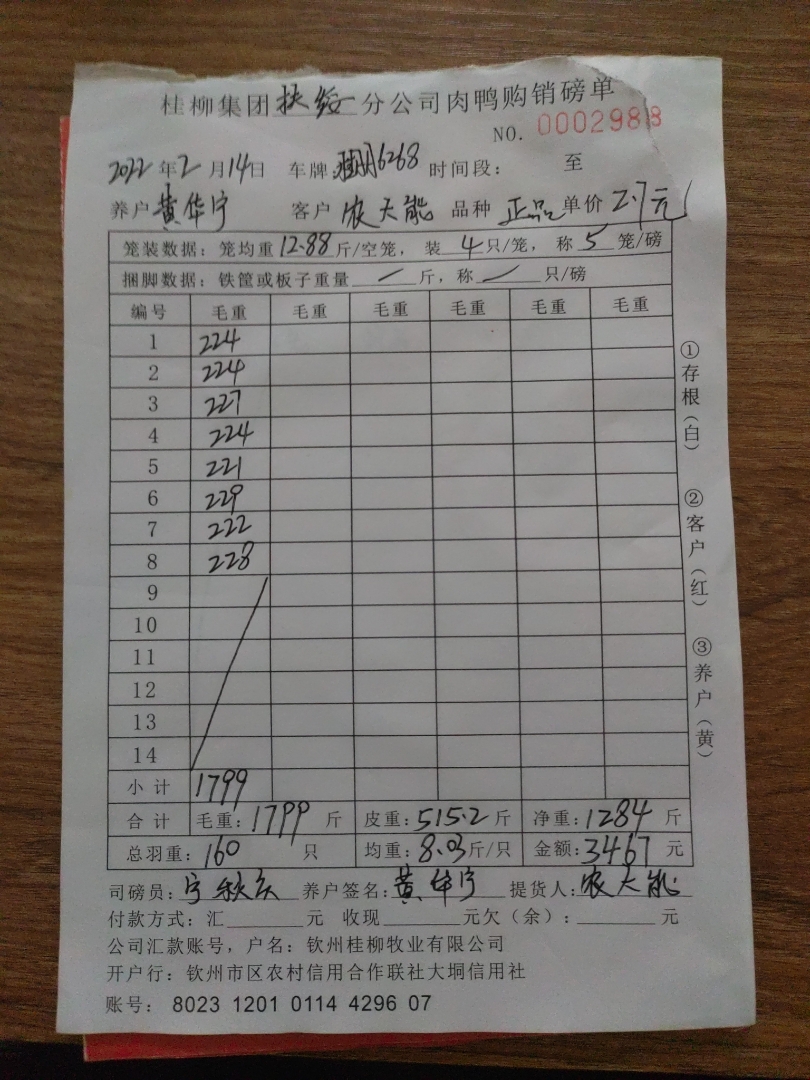 桂柳集团扶绥分公司肉鸭购销磅单
NO. 0002988
2022年2月14日 车牌:6268 时间段: 至
养户 黄华宁 客户 农天能 品种 正品 单价 2.7元
笼装数据: 笼均重12.88斤/空笼, 装 4 只/笼, 称 5 笼/磅
捆脚数据: 铁筐或板子重量 / 斤, 称 / 只/磅
编号 毛重 毛重 毛重 毛重 毛重 毛重
1 224
2 224
3 227
4 224
5 221
6 229
7 222
8 228
9
10
11
12
13
14
小计 1799
合计 毛重: 1799 斤 皮重: 515.2 斤 净重: 1284 斤
总羽重: 160 只 均重: 8.03斤/只 金额: 3467 元
司磅员: 宁 养户签名: 黄华宁 提货人: 农天能
付款方式: 汇 元 收现 元欠(余): 元
公司汇款账号, 户名: 钦州桂柳牧业有限公司
开户行: 钦州市区农村信用合作联社大垌信用社
账号: 8023 1201 0114 4296 07
①存根(白)
②客户(红)
③养户(黄)